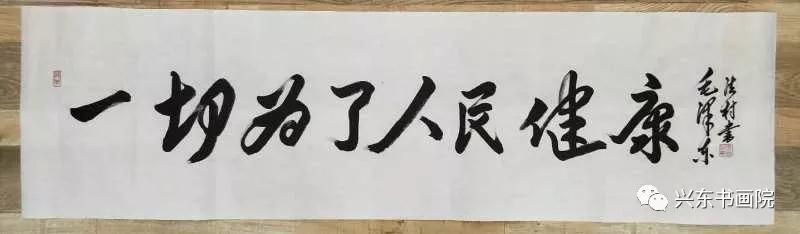 一切为了人民健康
毛泽东
兴东书画院